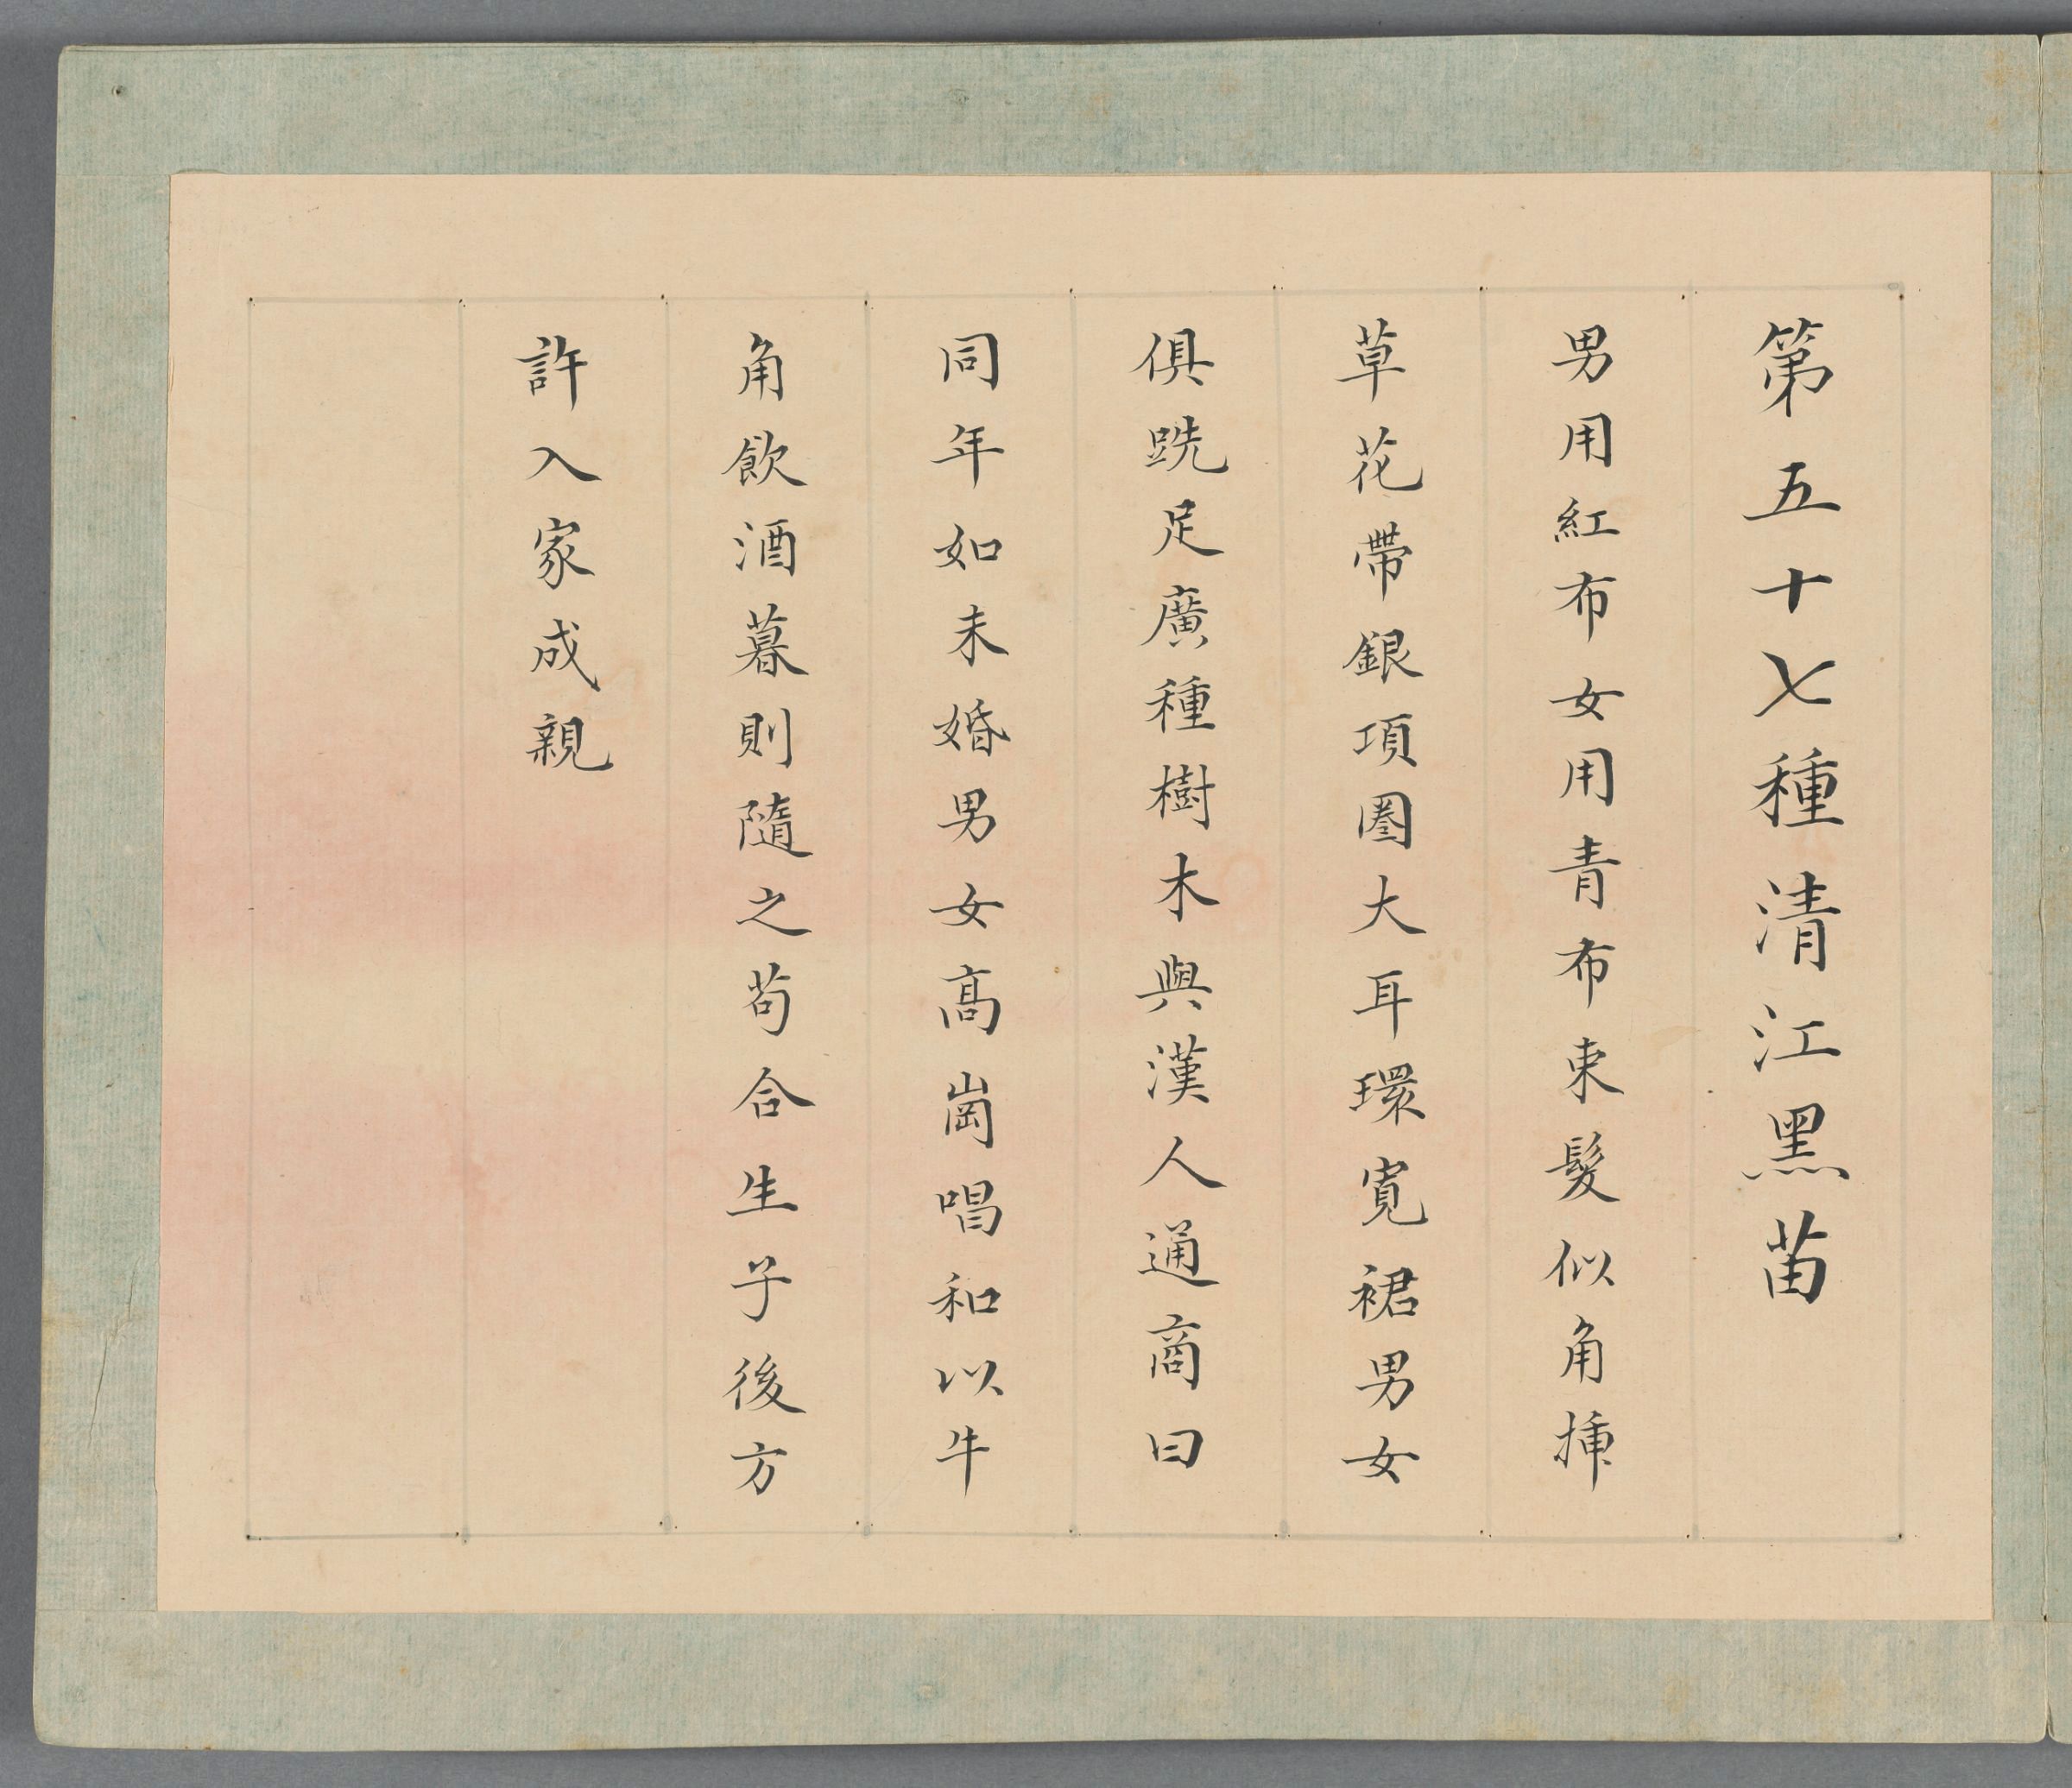 第五十七種清江黑苗
男用紅布女用青布束髮似角揷
草花帶銀項圈大耳環寬裙男女
俱跣足廣種樹木與漢人通商曰
同年如未婚男女高崗唱和以牛
角飲酒暮則隨之苟合生子後方
許入家成親